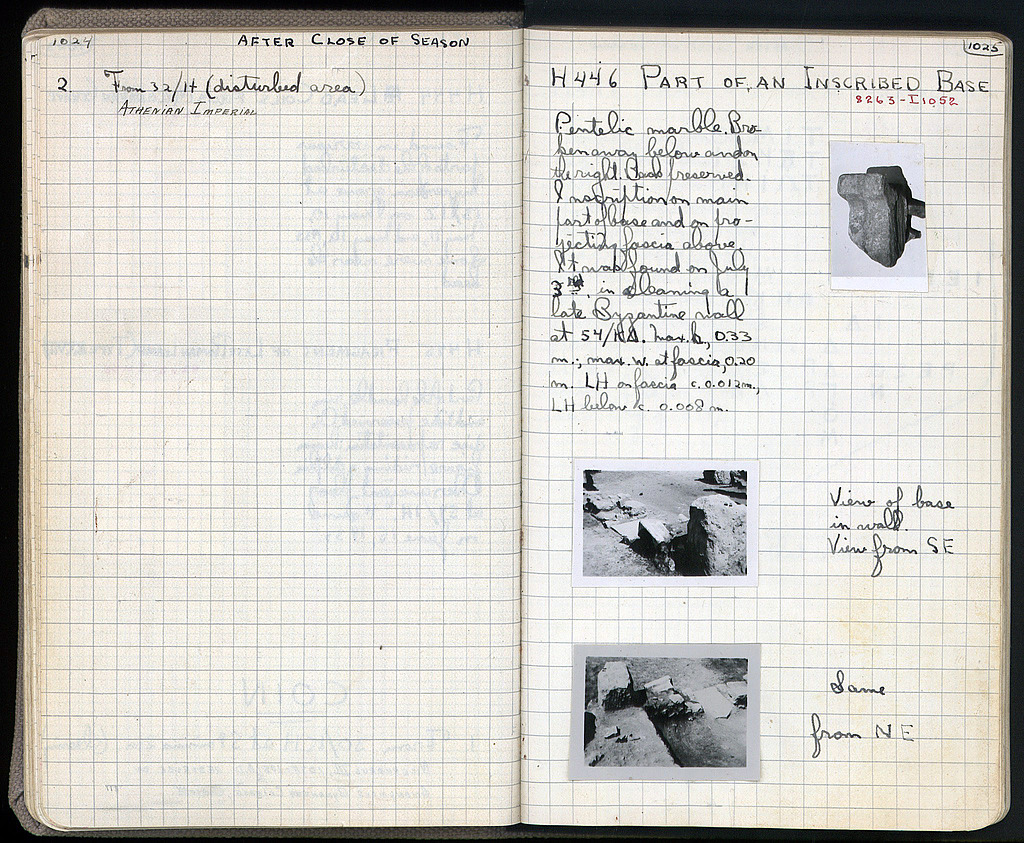 1024
AFTER CLOSE OF SEASON
2. From 32/ΙΗ (disturbed area)
ATHENIAN IMPERIAL
1025
H446 PART OF AN INSCRIBED BASE
8263-I 1052
Pentelic marble. Bro-
ken away below and on
the right. Back preserved.
Inscription on main
part of base and on pro-
jecting fascia above.
It was found on July
3rd, in cleaning a
late Byzantine wall
at 54/ΚΔ. Max. h, 0.33
m.; max. w. at fascia, 0.20
m. LH on fascia c. 0.012 m.,
LH below c. 0.008 m.
View of base
in wall.
View from SE
Same
from NE